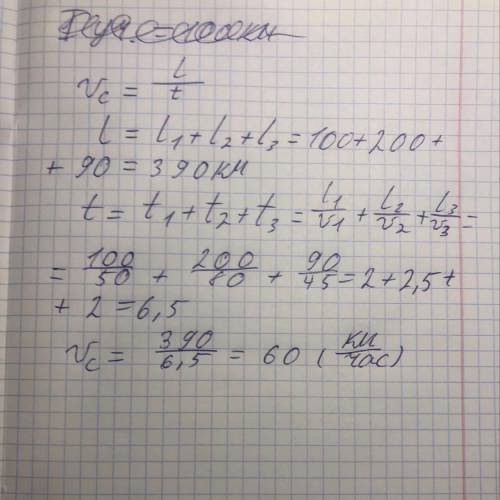 v_c = l/t
l = l₁+l₂+l₃ = 100+200+
+ 90 = 390 км
t = t₁+t₂+t₃ = l₁/v₁ + l₂/v₂ + l₃/v₃ =
= 100/50 + 200/80 + 90/45 = 2+2,5+
+ 2 = 6,5
v_c = 390/6,5 = 60 (км/час)